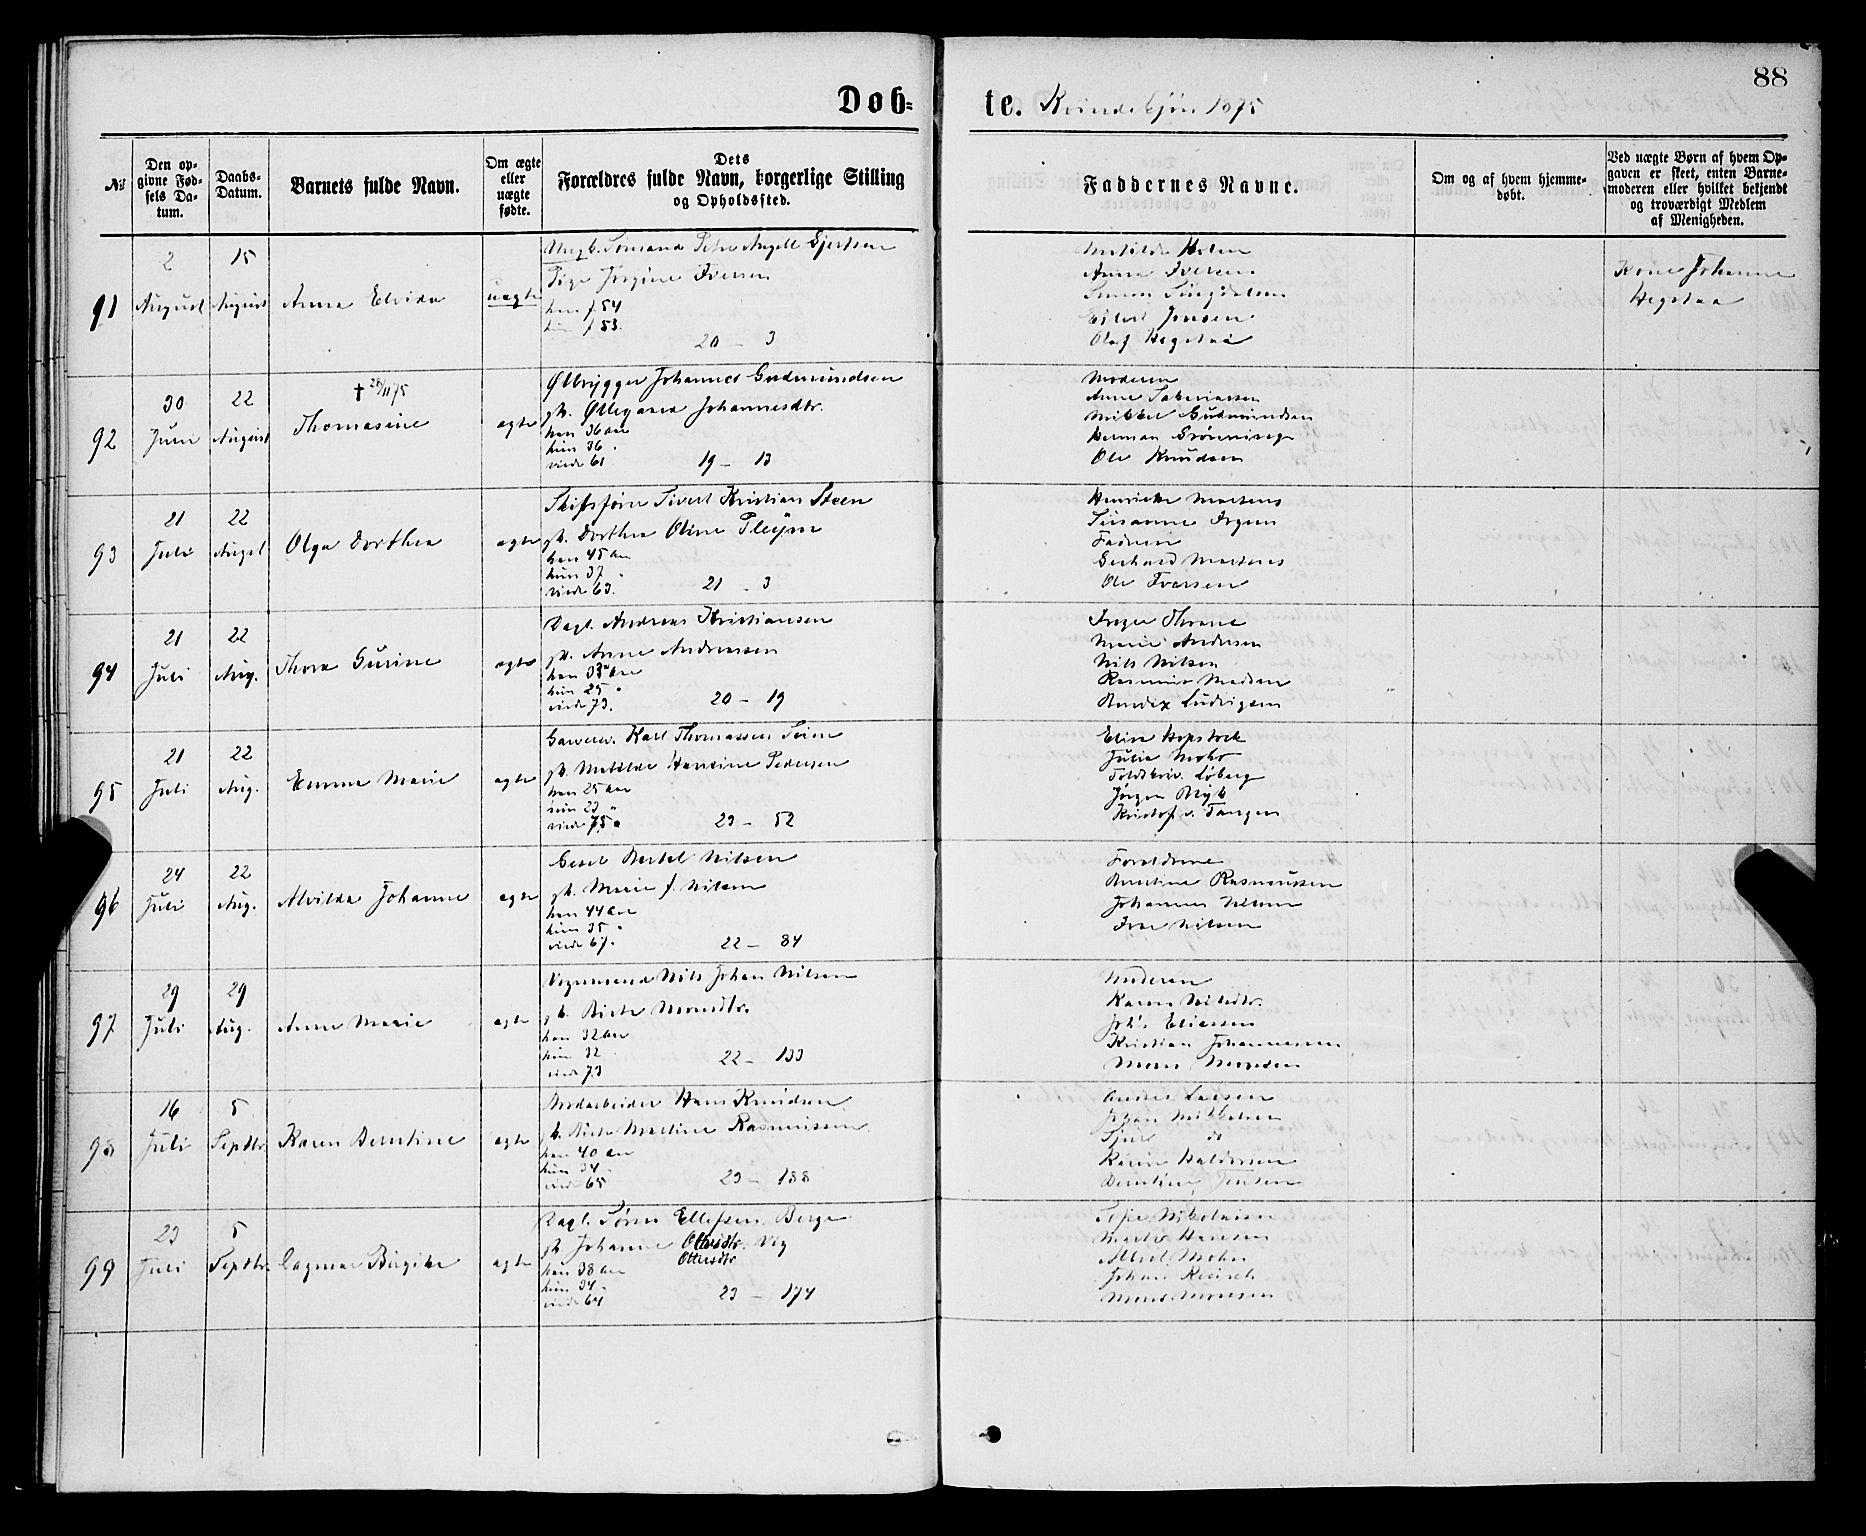 88
Døb-
te. Kvindekjøn 1875
№
Den op-
givne Fød-
sels Da-
tum.
Daabs-
Datum.
Barnets fulde Navn.
Om ægte
eller
uægte
fødte.
Dets
Forældres fulde Navn, borgerlige Stilling
og Opholdssted.
Faddernes Navne.
Om og af hvem hjemme-
døbt.
Ved uægte Børn af hvem Op-
gaven er skeet, enten Barne-
moderen eller hvilket bekjendt
og troværdigt Medlem
af Menigheden.
91
2
August
15
August
Anna Elvida
uægte
Ungk. Sømand Petter Angell Gjertsen
Pige Jørgine Iversen
han f. 54
hun f. 53.
20 – 3
Matilda Holm
Anna Iversen
Eilert Jensen
Olaf Hegstad
Kone Johanne
Hegstad
92
30
Juni
22
August
† 26/11 75
Thomasine
ægte
Ølbrygger Johannes Gudmundsen
gk. Øllegaard Johannesdtr.
han 36 aar
hun 36
viede 61
19 – 13
Moderen
Anne Tobiassen
Mikkel Gudmundsen
Herman Grønning
Ole Knudsen
93
21
Juli
22
Augst
Olga Dorthea
ægte
Skibsfører Sivert Kristian Steen
gk. Dorthea Oline Pleym
han 45 aar
hun 37
viede 63.
21 – 3
Henrikke Martens
Susanne Irgens
Faderen
Gerhard Martens
Ole Iversen
94
21
Juli
22
Aug.
Thora Gurine
ægte
Dagl. Andreas Kristiansen
gk. Anne Andreassen
han 33 aar
hun 25
viede 73.
20 – 19
Inger Thrane
Marie Andersen
Nils Nilsen
Rasmus Madsen
Bendix Ludvigsen
95
21
Juli
22
Aug.
Emma Marie
ægte
Garversv. Karl Thomassen Seim
gk. Matilde Hansine Pedersen
han 25 aar
hun 23
viede 75
23 – 52
Elise Hopstock
Julia Mohr
Toldskriv. Løberg
Jørgen Myk
Kristof v. Tangen
96
24
Juli
22
Aug.
Alvilda Johanne
ægte
Gesel Bertel Nilsen
gk. Marie f. Nilsen
han 44 aar
hun 35
viede 67.
22 – 84
Forældrene
Berntine Rasmussen
Johannes Nilsen
Ivar Nilsen
97
29
Juli
29
Aug.
Anne Marie
ægte
Vognmand Nils Johan Nilsen
gk. Birte Monsdtr.
han 32 aar
hun 32
viede 73
22 – 133
Moderen
Karen Nilsdtr.
Johs. Eliassen
Kristian Johannessen
Mons Monsen
98
16
Juli
5
Septbr.
Karen Berntine
ægte
Jordarbeider Hans Knudsen
gk. Birte Martine Rasmussen
han 40 aar
hun 34
viede 65
23 – 188
Anders Larsen
Johan Mikkelsen
Sjur do
Karen Haldorsen
Berntine Jensen
99
23
Juli
5
Septbr.
Dagmar Birgithe
ægte
Dagl. Søren Ellefsen Berge
gk. Johanne Ottersdtr. Vig
Ottersdtr
han 38 aar
hun 34
viede 64
23 – 174
Sofie Nikolaisen
Marthe Hansen
Albert Mohn
Johan Reusch
Mons Monsen